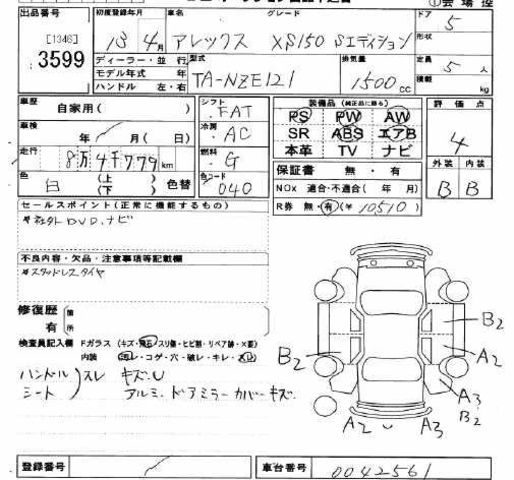 出品番号
[1346]
3599
初度登録年月
13 年 4 月
車名
グレード
アレックス XS150 Sエディション
ドア
5
形状
ディーラー・並行
モデル年式 年
ハンドル 左・右
型式
TA-NZE121
排気量
1500 cc
定員
5 人
積載
kg
車歴
自家用( )
車検
年 月(日)
走行
8万4千779 km
色
白
(上)
(下)
色替
シフト
FAT
冷房
AC
燃料
G
色コード
040
装備品 (純正品に限る)
PS PW AW
SR ABS エアB
本革 TV ナビ
保証書 無・有
NOx 適合・不適合( 年 月)
R券 無・有(¥ 10510 )
評価点
4
外装 内装
B B
セールスポイント(正常に機能するもの)
#社外DVD.ナビ
不良内容・欠品・注意事項等記載欄
#スタッドレスタイヤ
修復歴
有
箇
所
検査員記入欄
Fガラス (キズ・飛石・スリ傷・ヒビ割・リペア跡・X要)
内装 汚レ・コゲ・穴・破レ・キレ・スレ
ハンドル
シート
スレ キズ.U
アルミ.ドアミラーカバーキズ.
B2
B2
A2
A3
B2
A2 U A3
登録番号
車台番号
0042561